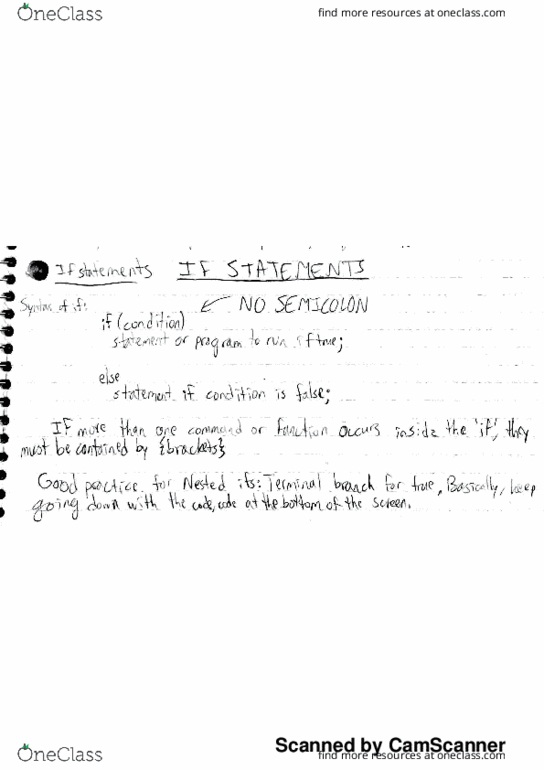 OneClass
find more resources at oneclass.com
If statements IF STATEMENTS
Syntax of if:
NO SEMICOLON
if (condition)
statement or program to run if true;
else
statement if condition is false;
IF more than one command or function occurs inside the 'if', they
must be contained by {brackets}
Good practice for Nested ifs: Terminal branch for true, Basically, keep
going down with the code, code at the bottom of the screen.
Scanned by CamScanner
OneClass
find more resources at oneclass.com